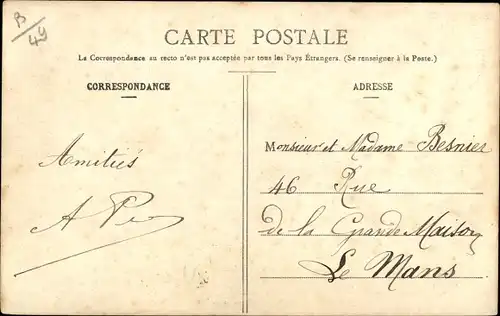 B/49
CARTE POSTALE
La Correspondance au recto n'est pas acceptée par tous les Pays Étrangers. (Se renseigner à la Poste.)
CORRESPONDANCE
Amitiés
A
ADRESSE
Monsieur et Madame Besnier
46 Rue
de la Grande Maison
Le Mans